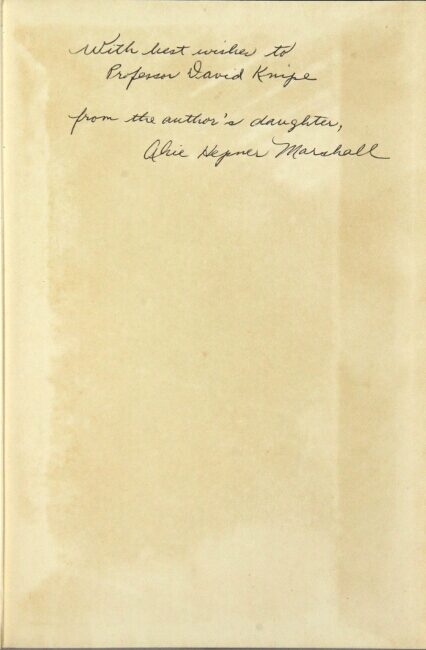 With best wishes to
Professor David Knipe
from the author's daughter,
Hepner Marshall